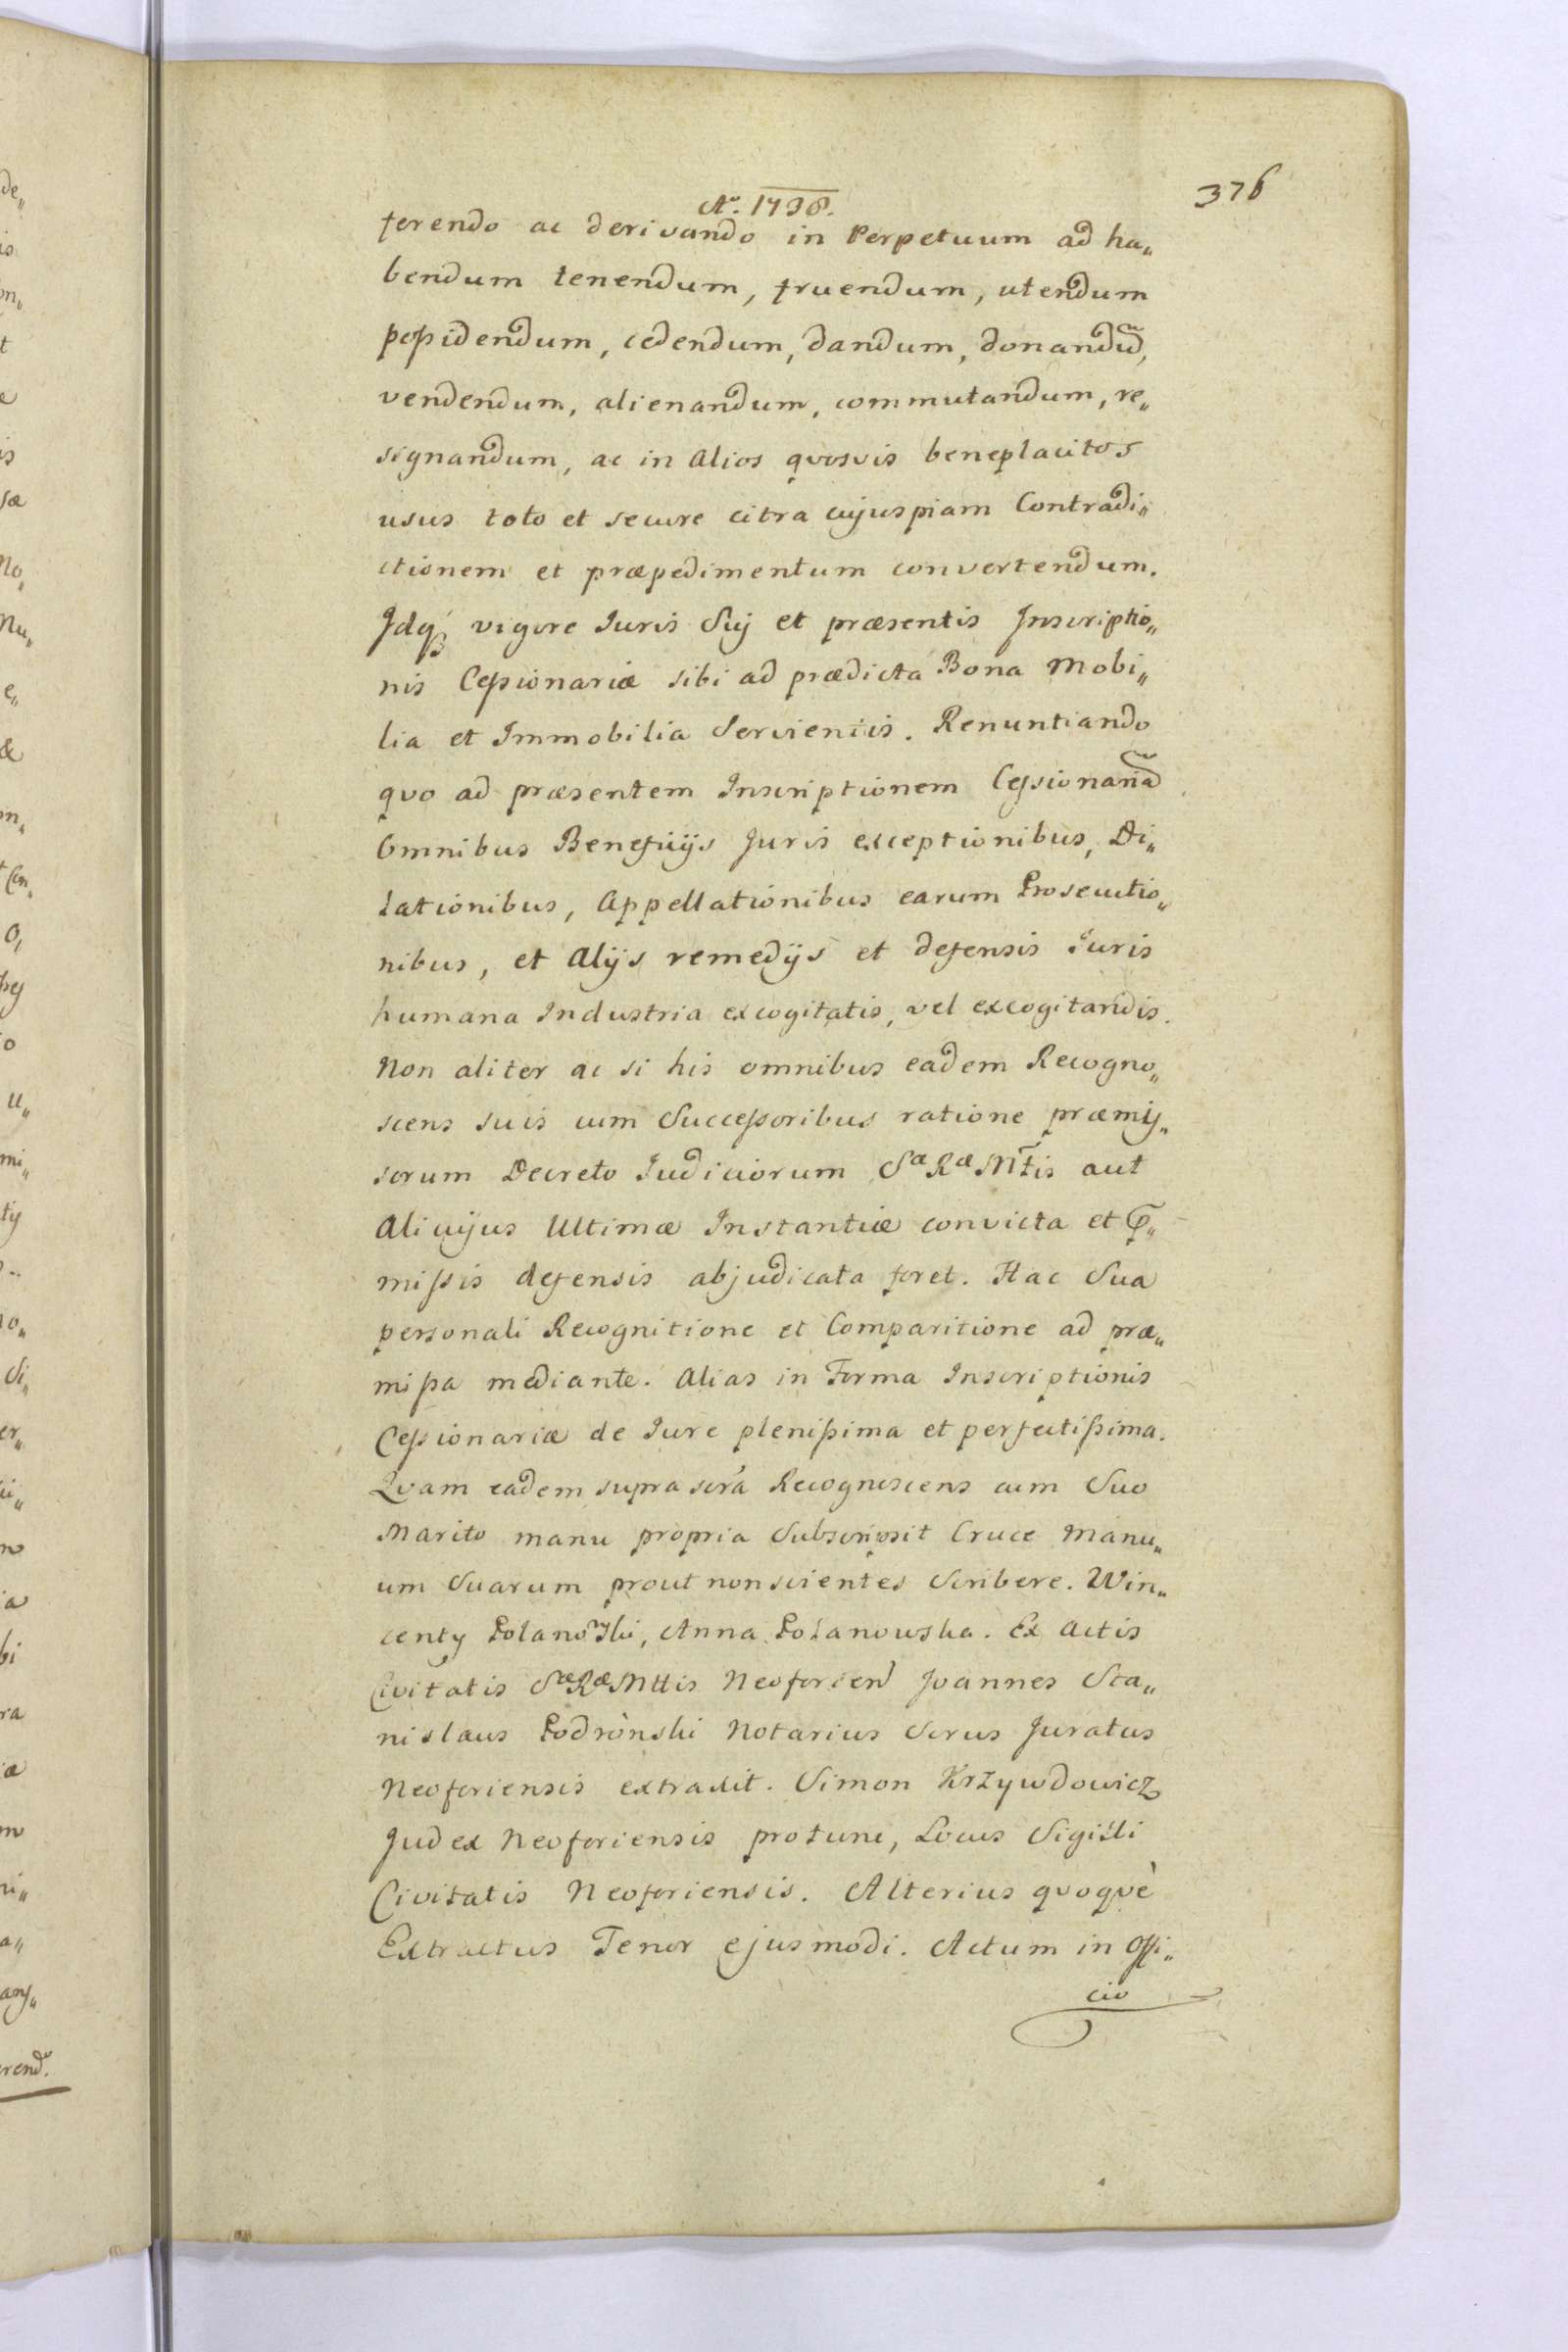 376
Aº. 1738.
ferendo ac derivando in Perpetuum ad ha„
bendum tenendum, fruendum, utendum
poßidendum, cedendum, dandum, donandũ,
vendendum, alienandum, commutandum, re„
signandum, ac in alios quosvis beneplacitos
usus toto et secure citra cujuspiam Contradi„
ctionem et præpedimentum convertendum.
Idq; vigore Iuris Suj et præsentis Inscriptio„
nis Ceßionariæ sibi ad prædicta Bona Mobi„
lia et Immobilia Servientis. Renuntiando
quo ad præsentem Inscriptionem Ceßionariã
Omnibus Beneficijs Juris exceptionibus, Di„
lationibus, Appellationibus earum Prosecutio„
nibus, et Alijs remedijs et defensis Iuris
humana Industria excogitatis, vel excogitandis.
Non aliter ac si his omnibus eadem Recogno„
scens suis cum Succeßoribus ratione præmiſ„
sorum Decreto Iudiciorum Sæ Ræ Mt̃is aut
Alicujus Ultimæ Instantiæ convicta et p̃„
mißis defensis abjudicata foret. Hac Sua
personali Recognitione et Comparitione ad præ„
mißa mediante. Alias in Forma Inscriptionis
Ceßionariæ de Iure plenißima et perfectißima.
Quam eadem supra scrã Recognoscens cum Suo
Marito manu propria Subscripsit Cruce Manu„
um Suarum prout non scientes Scribere. Win„
centy Polanowski, Anna Polanowska. Ex Actis
Civitatis Sæ Ræ Mttis Neoforien̄ Joannes Sta„
nislaus Podroński Notarius Scrus Juratus
Neoforiensis extraxit. Simon Krzywdowicz
Judex Neoforiensis protunc, Locus Sigilli
Civitatis Neoforiensis. Alterius quoquè
Extractus Tenor ejusmodi. Actum in Offi„
cio